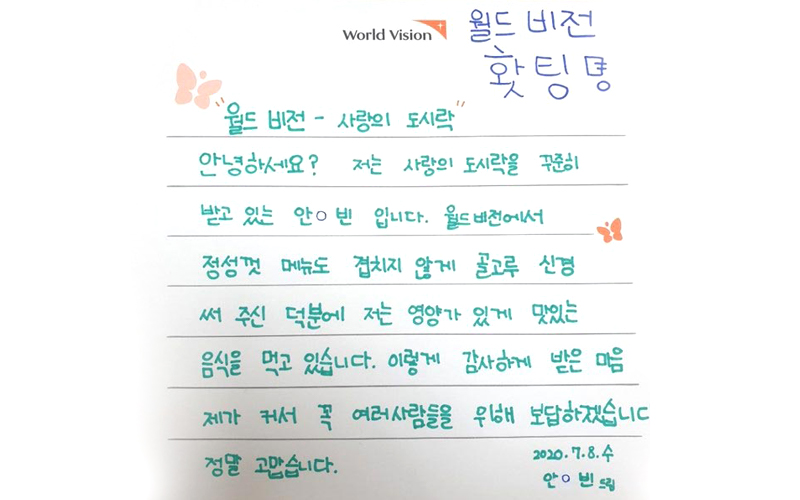 World Vision
월드 비전
홧팅 명
"월드 비전 - 사랑의 도시락"
안녕하세요? 저는 사랑의 도시락을 꾸준히
받고 있는 안○빈 입니다. 월드비전에서
정성껏 메뉴도 겹치지 않게 골고루 신경
써 주신 덕분에 저는 영양가 있게 맛있는
음식을 먹고 있습니다. 이렇게 감사하게 받은 마음
제가 커서 꼭 여러사람들을 위해 보답하겠습니다
정말 고맙습니다.
2020.7.8.수
안○빈 드림